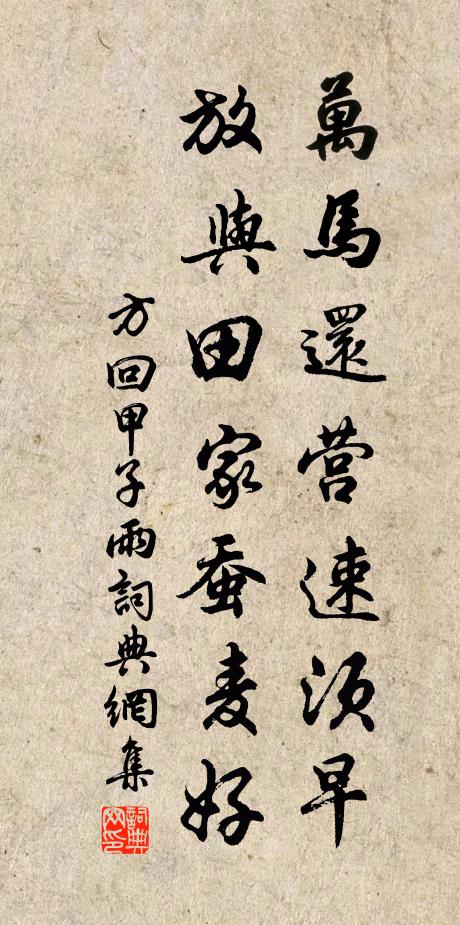 萬馬還营速須早
放與田家蚕麦好
方回甲子雨詞典網集
詞典
网印